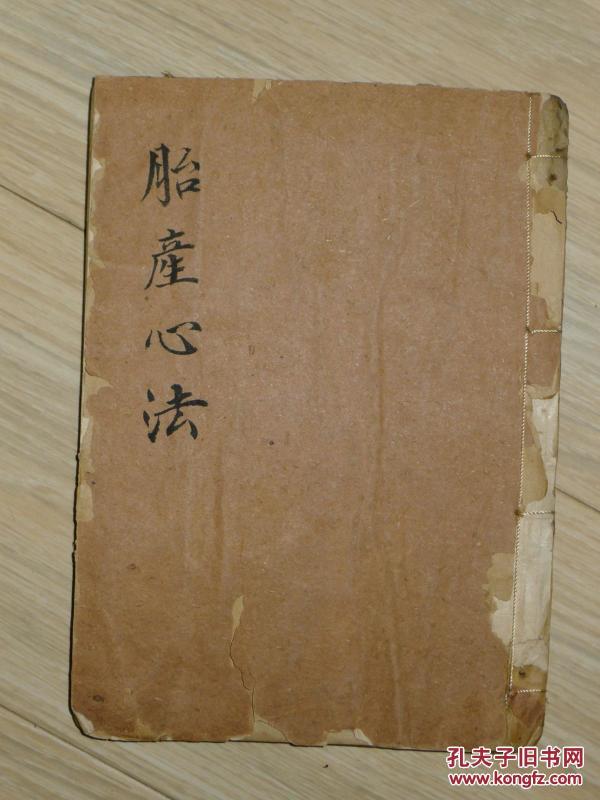 胎產心法
孔夫子旧书网
www.kongfz.com